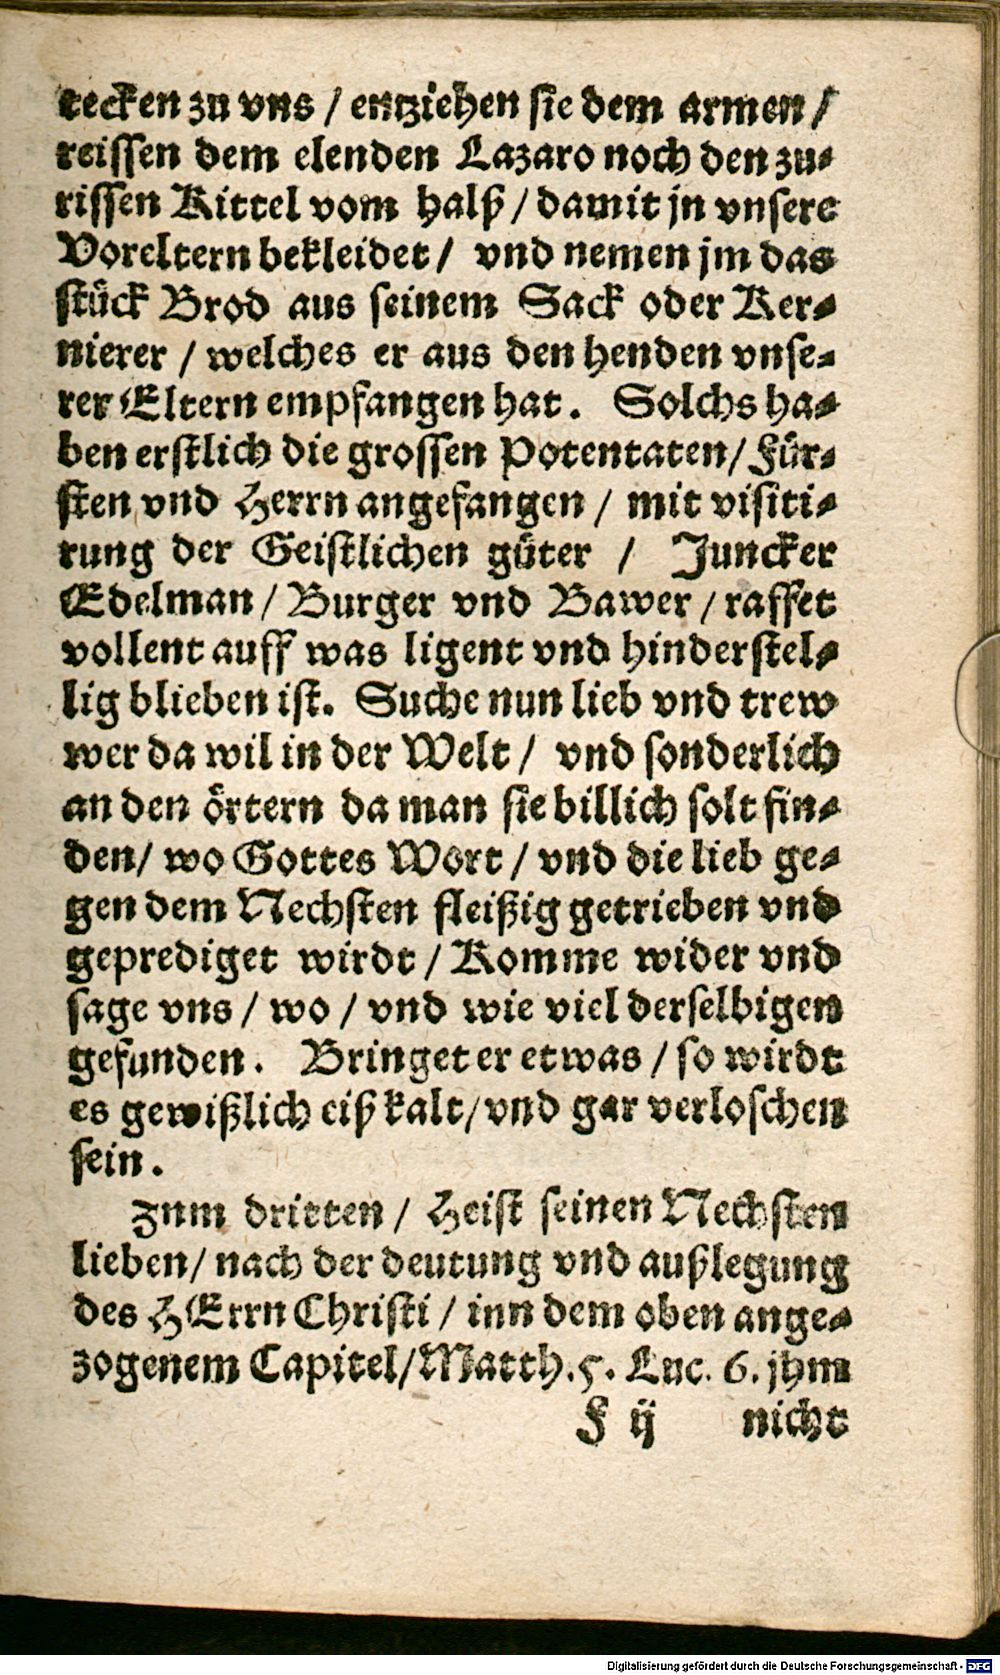 tecken zu vns / entziehen sie dem armen /
reissen dem elenden Lazaro noch den zu-
rissen Kittel vom halß / damit jn vnsere
Voreltern bekleidet / vnd nemen jm das
stück Brod aus seinem Sack oder Ker-
nierer / welches er aus den henden vnse-
rer Eltern empfangen hat. Solchs ha-
ben erstlich die grossen Potentaten / Für-
sten vnd Herrn angefangen / mit visiti-
rung der Geistlichen güter / Juncker
Edelman / Burger vnd Bawer / raffet
vollent auff was ligent vnd hinderstel-
lig blieben ist. Suche nun lieb vnd trew
wer da wil in der Welt / vnd sonderlich
an den örtern da man sie billich solt fin-
den / wo Gottes Wort / vnd die lieb ge-
gen dem Nechsten fleißig getrieben vnd
geprediget wirdt / Komme wider vnd
sage vns / wo / vnd wie viel derselbigen
gefunden. Bringet er etwas / so wirdt
es gewißlich eiß kalt / vnd gar verloschen
sein.
Zum dritten / Heist seinen Nechsten
lieben / nach der deutung vnd außlegung
des HErrn Christi / inn dem oben ange-
zogenem Capitel / Matth. 5. Luc. 6. jhm
F ij nicht
Digitalisierung gefördert durch die Deutsche Forschungsgemeinschaft - DFG